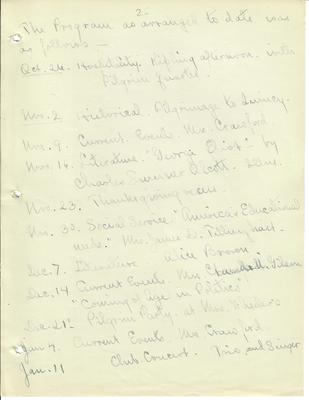 2-
The Program as arranged to date was
as follows —
Oct. 26. Hospitality. Kipling afternoon with
Pilgrim Quartet.
Nov. 2 Historical. Pilgrimage to Quincy.
Nov. 9. Current Events. Mrs. Crawford.
Nov. 16. Literature. "George Eliot" by
Charles Sumner Olcott.
Nov. 23. Thanksgiving recess.
Nov. 30. Social Service. "America's Educational
Mrs. James D. Tillinghast.
Dec. 7. Literature. Alice Brown.
Dec. 14 Current Events. Mrs.
"Coming of Age in Politics"
Dec. 21st Pilgrim Party at Mrs. Wheeler's
Jan 4. Current Events. Mrs Crawford.
Jan. 11 Club Concert. Trio and Singer